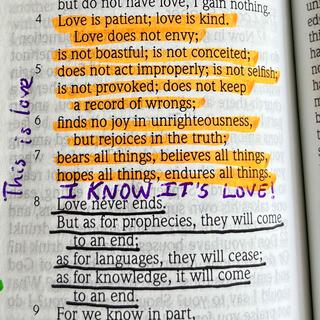 but do not have love, I gain nothing.
4 Love is patient; love is kind.
Love does not envy;
is not boastful; is not conceited;
5 does not act improperly; is not selfish;
is not provoked; does not keep
a record of wrongs;
6 finds no joy in unrighteousness,
but rejoices in the truth;
7 bears all things, believes all things,
hopes all things, endures all things.
This is love
I KNOW IT'S LOVE!
8 Love never ends.
But as for prophecies, they will come
to an end;
as for languages, they will cease;
as for knowledge, it will come
to an end.
9 For we know in part,